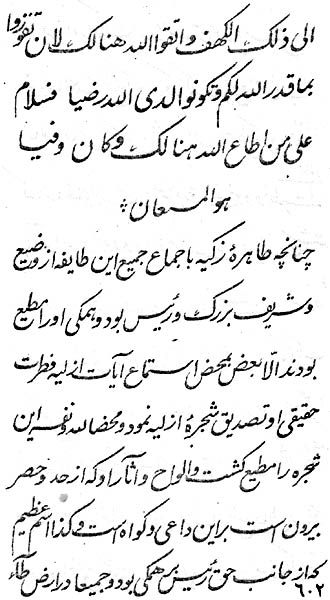 الی ذلک الکهف و اتقوا الله هنالک لان تفوزوا
بما قدر الله لکم و تکونوا لدی الله رضیا فسلام
علی من اطاع الله هنالک و کان وفیا
هو المستعان
چنانچه طاهرهٔ زکیه باجماع جمیع این طایفه از وضیع
و شریف بزرک و رئیس بود و همکی او را مطیع
بودند الا بعض بمحض استماع آیات ازلیه فطرت
حقیقی او تصدیق شجرهٔ ازلیه نمود و محضا لله و نفسه این
شجره را مطیع کشت و الواح و آثار او که از حد و حصر
بیرون است بر این داعی و کواه است و کذا اسم عظیم
که از جانب حق رئیس بر همکی بود و جمیعا در ارض طاء
۶۰۲